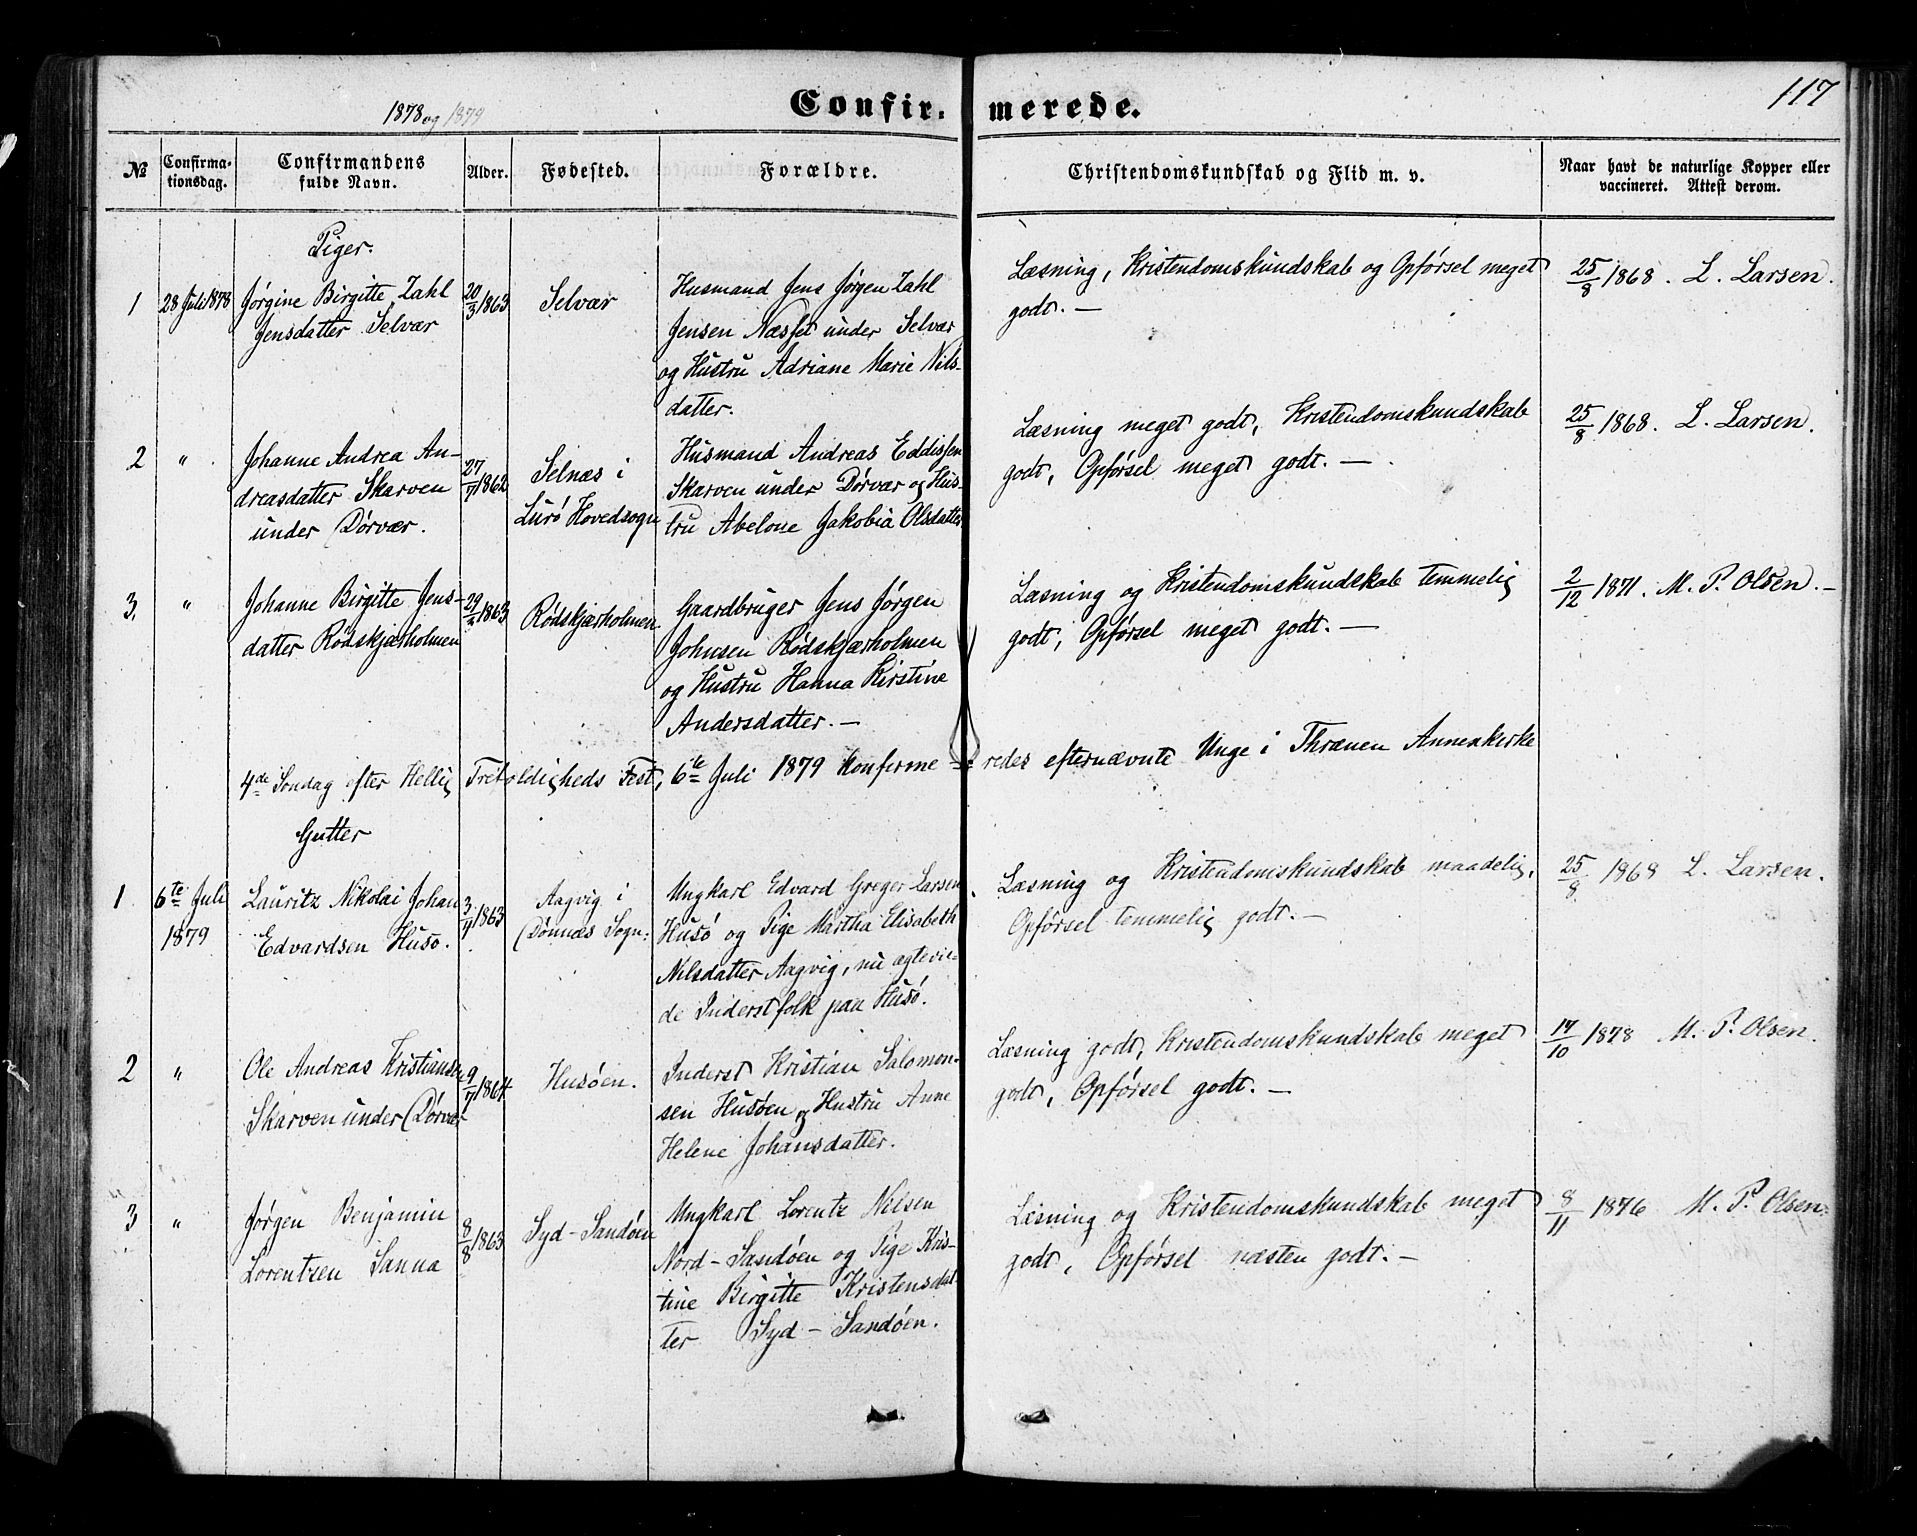 117
1878 og 1879
Confirmerede.
№ Confirmationsdag. Confirmandens fulde Navn. Alder. Fødested. Forældre. Christendomskundskab og Flid m. v. Naar havt de naturlige Kopper eller vaccineret. Attest derom.
Piger.
1 28 Juli 1878 Jørgine Birgitte Zahl
Jensdatter Selvær
20/3 1863 Selvær
Husmand Jens Jørgen Zahl
Jensen Næsset under Selvær
og Hustru Adriane Marie Nils-
datter.
Læsning, Kristendomskundskab og Opførsel meget
godt. —
25/8 1868. L. Larsen.
2 " Johanne Andrea An-
dreasdatter Skarven
under Dørvær.
27/7 1862 Selnæs i
Lurö Hovedsogn
Husmand Andreas Eddissen
Skarven under Dørvær og Hus-
tru Abelone Jakobia Olsdatter
Læsning meget godt, Kristendomskundskab
godt, Opførsel meget godt. —
25/8 1868. L. Larsen.
3. " Johanne Birgitte Jens-
datter Rødskjærholmen
1863 Rødskjærholmen
Gaardbruger Jens Jørgen
Johnsen Rødskjærholmen
og Hustru Hanna Kirstine
Andersdatter. —
Læsning og Kristendomskundskab temmelig
godt, Opførsel meget godt. —
2/12 1871. M. P. Olsen. —
4de Søndag efter Hellig Trefoldigheds Fest, 6te Juli 1879 konfirmeredes efternævnte Unge i Thrænen Annexkirke
Gutter
1 6te Juli
1879
Lauritz Nikolai Johan
Edvardsen Husø.
3/11 1863 Aagvig i
Dønnæs Sogn.
Ungkarl Edvard Greger Larsen
Husö og Pige Martha Elisabeth
Nilsdatter Aagvig, nu ægtevie-
de Inderstfolk paa Husö.
Læsning og Kristendomskundskab maadelig,
Opførsel temmelig godt. —
25/8 1868 L. Larsen.
2 " Ole Andreas Kristiansen
Skarven under Dørvær
9/7 1864 Husöen.
Inderst Kristian Salomon-
sen Husöen og Hustru Anne
Helene Johansdatter.
Læsning godt, Kristendomskundskab meget
godt, Opførsel godt. —
17/10 1878 M. P. Olsen.
3 " Jørgen Benjamin
Lorentzen Sanna
8/8 1863 Syd-Sandöen
Ungkarl Lorentz Nilsen
Nord-Sandöen og Pige Kris-
tine Birgitte Kristensdat-
ter Syd-Sandöen.
Læsning og Kristendomskundskab meget
godt, Opførsel næsten godt. —
8/11 1876 M. P. Olsen.